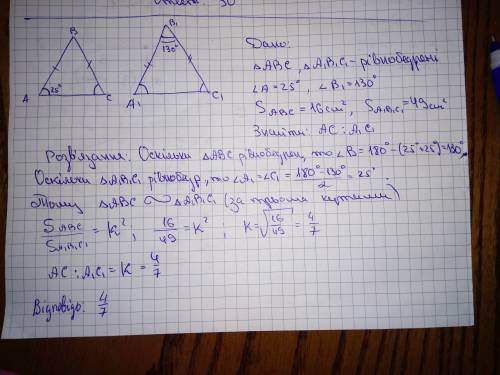 30
B
25°
A
C
B₁
130°
A₁
C₁
Дано:
△ABC, △A₁B₁C₁ - рівнобедрені
∠A=25°, ∠B₁=130°
S ABC = 16 см², S A₁B₁C₁ = 49 см²
Знайти: AC : A₁C₁
Розв'язання: Оскільки △ABC рівнобедрен, то ∠B = 180° - (25°+25°)=130°.
Оскільки △A₁B₁C₁ рівнобедр, то ∠A₁=∠C₁ = (180°-130°)/2 = 25°.
Тому △ABC ∼ △A₁B₁C₁ (за трьома кутами)
S ABC / S A₁B₁C₁ = K²; 16/49 = K²; K = √(16/49) = 4/7
AC : A₁C₁ = K = 4/7
Відповідь: 4/7